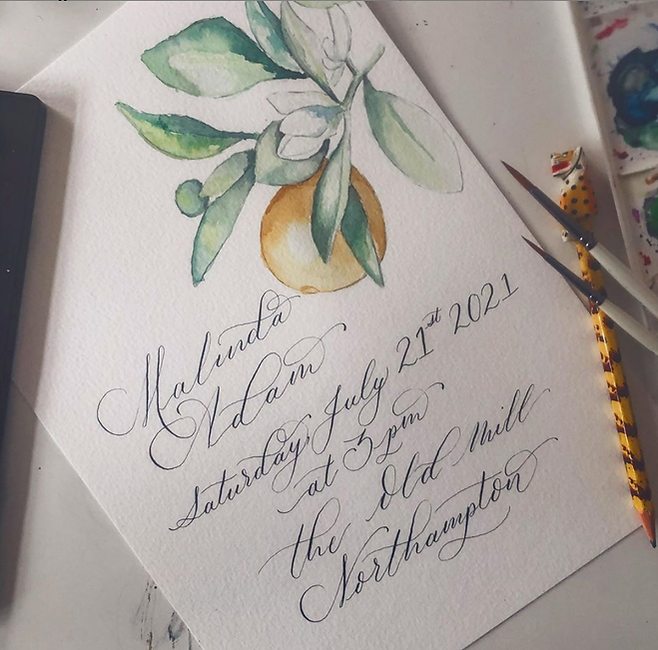 Malinda
Adam
Saturday, July 21st 2021
at 3 pm
the Old Mill
Northampton